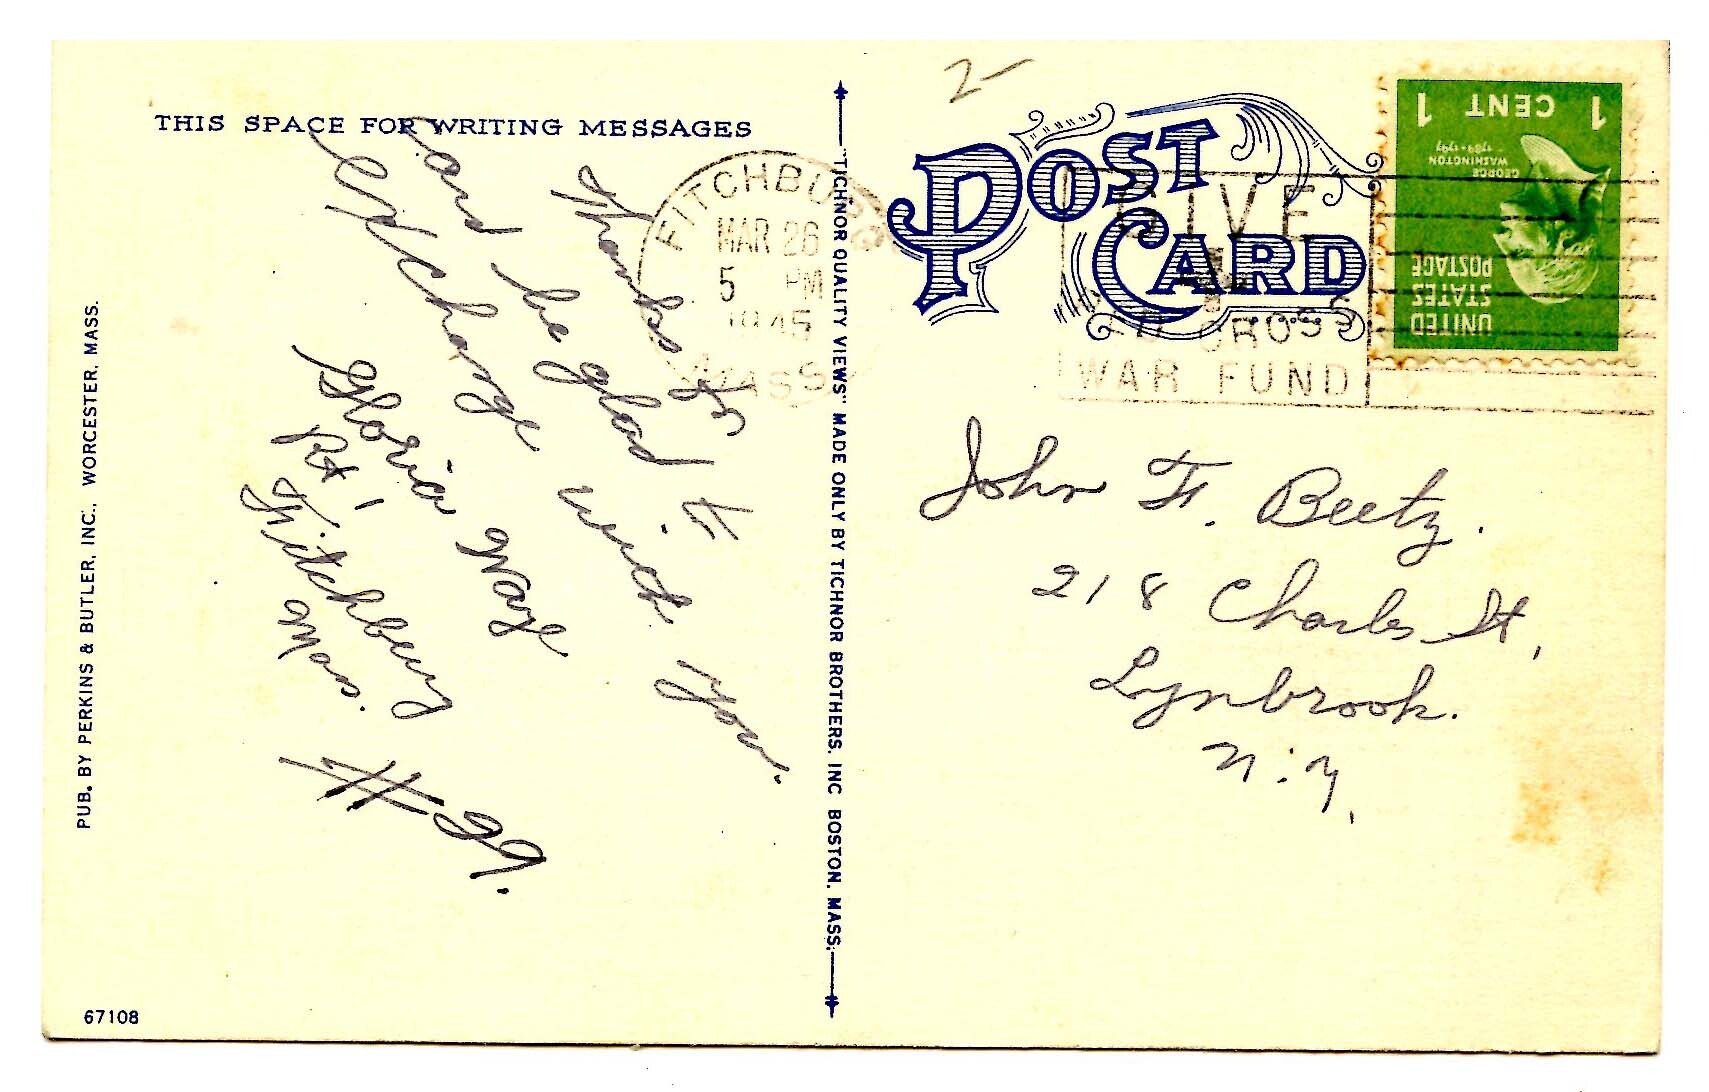 THIS SPACE FOR WRITING MESSAGES
Thanks for
and be glad to
exchange with you.
Gloria Waye
Rt 1
Fitchburg
Mass.
# 29.
PUB. BY PERKINS & BUTLER, INC., WORCESTER, MASS.
67108
"TICHNOR QUALITY VIEWS" MADE ONLY BY TICHNOR BROTHERS, INC BOSTON, MASS.
2-
POST CARD
FITCHBURG
MAR 26
5 PM
1945
MASS
GIVE
RED CROSS
WAR FUND
1 CENT 1
GEORGE
WASHINGTON
1789-1797
UNITED
STATES
POSTAGE
John F. Beetz.
218 Charles St,
Lynbrook.
N.Y.